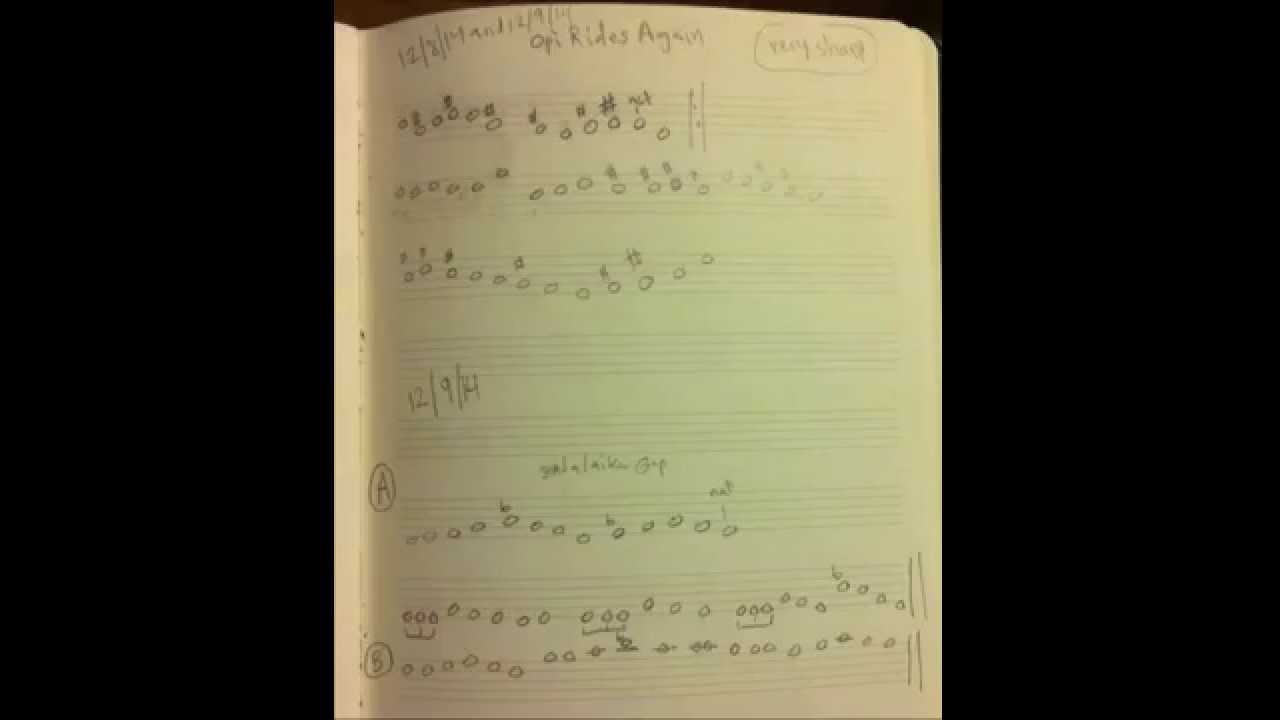 12/8/14 and 12/9/14
Opi Rides Again
very sharp
nat
12/9/14
balalaika Gap
A
nat
B